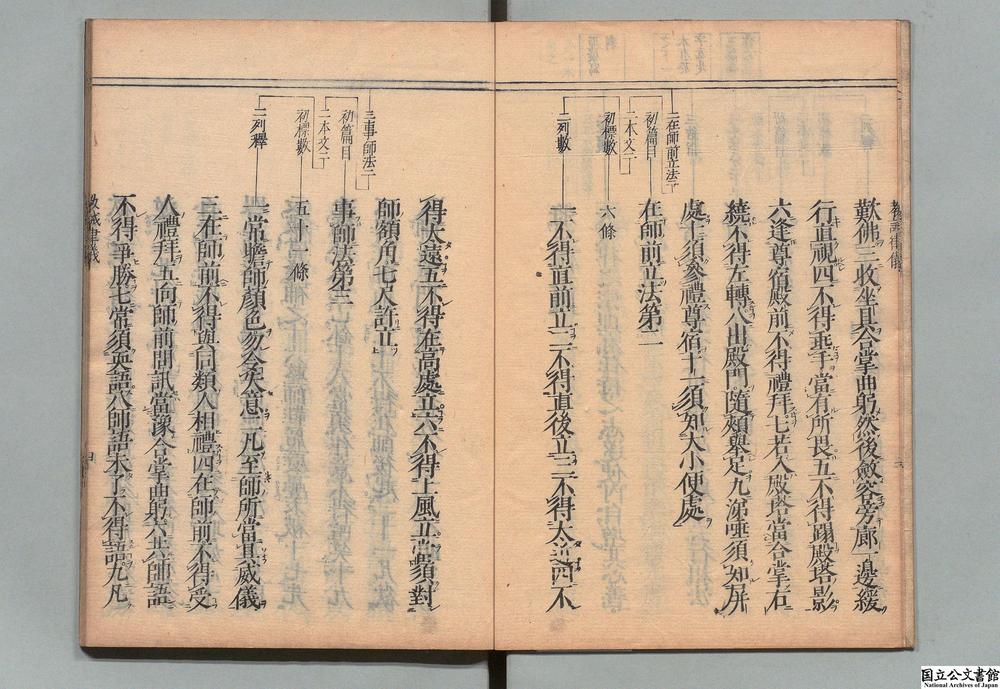 歎佛三收坐具合掌曲躬然後斂容旁廊一邊緩
行直視四不得垂手當有所畏五不得蹋殿塔影
六逢尊宿殿前不得禮拜七若入殿塔當合掌右
繞不得左轉八出殿門隨頰舉足九涕唾須知屏
處十須參禮尊宿十一須知大小便處
二在師前立法二
初篇目
在師前立法第二
二本文二
初標數
六條
二列數
一不得直前立二不得直後立三不得太近四不
得太遠五不得在高處立六不得上風立當須對
師額角七尺許立
三事師法二
初篇目
事師法第三
二本文二
初標數
五十一條
二列釋
一常瞻師顏色勿令失意二凡至師所當具威儀
三在師前不得與同類人相禮四在師前不得受
人禮拜五向師前問訊當深合掌曲躬六共師語
不得爭勝七常須軟語八師語未了不得語九凡
教誡律儀
国立公文書館
National Archives of Japan